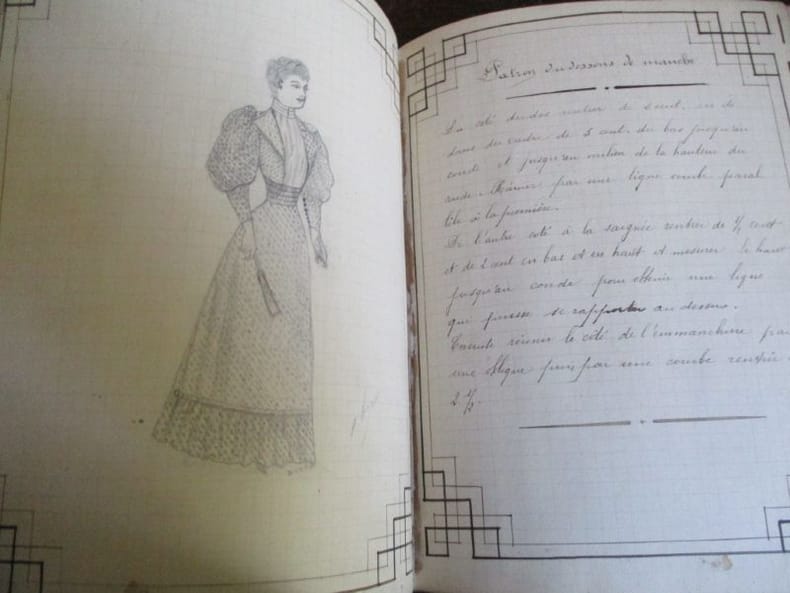 Patron du dessous de manche
Du côté du dos rentrer de 3 cent. en de
dans du cadre de 5 cent. du bas jusqu'au
coude et jusqu'au milieu de la hauteur du
coude. Réunir par une ligne courbe paral
lèle à la première.
De l'autre côté à la saignée rentrer de ½ cent
et de 2 cent en bas et en haut et mesurer le haut
jusqu'au coude pour obtenir une ligne
qui puisse se rapporter au dessus.
Ensuite réunir le côté de l'emmanchure par
une oblique puis par une courbe rentrée
2 ½.